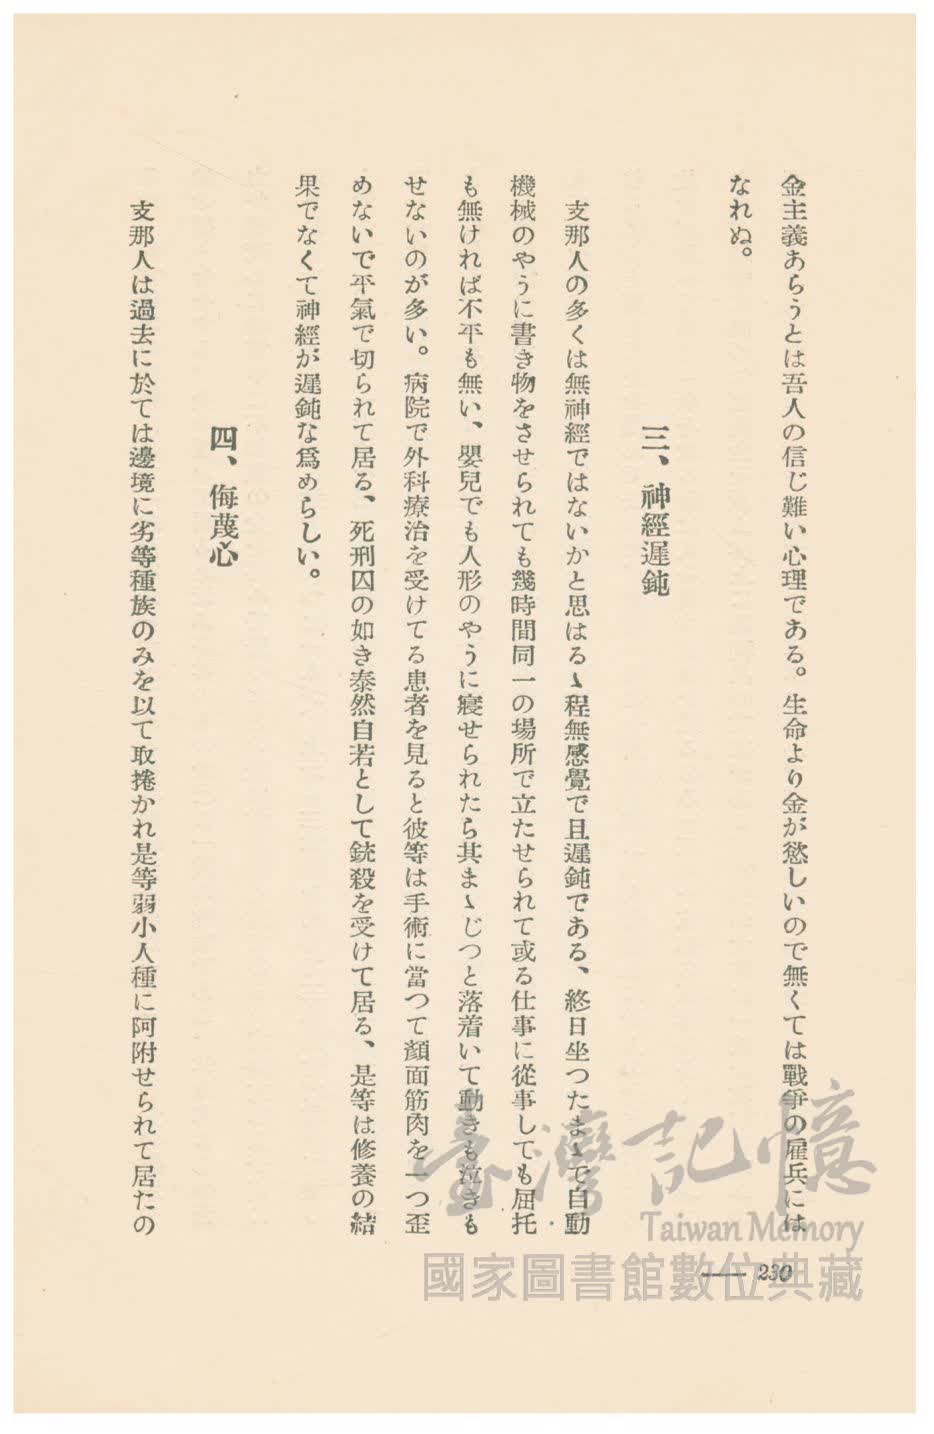 金主義あらうとは吾人の信じ難い心理である。生命より金が慾しいので無くては戰爭の雇兵には
なれぬ。
三、神經遲鈍
支那人の多くは無神經ではないかと思はるゝ程無感覺で且遲鈍である、終日坐つたまゝで自動
機械のやうに書き物をさせられても幾時間同一の場所で立たせられて或る仕事に從事しても屈托
も無ければ不平も無い、嬰兒でも人形のやうに寢せられたら其まゝじつと落着いて動きも泣きも
せないのが多い。病院で外科療治を受けてる患者を見ると彼等は手術に當つて顏面筋肉を一つ歪
めないで平氣で切られて居る、死刑囚の如き泰然自若として銃殺を受けて居る、是等は修養の結
果でなくて神經が遲鈍な爲めらしい。
四、侮蔑心
支那人は過去に於ては邊境に劣等種族のみを以て取捲かれ是等弱小人種に阿附せられて居たの
230
臺灣記憶
Taiwan Memory
國家圖書館數位典藏